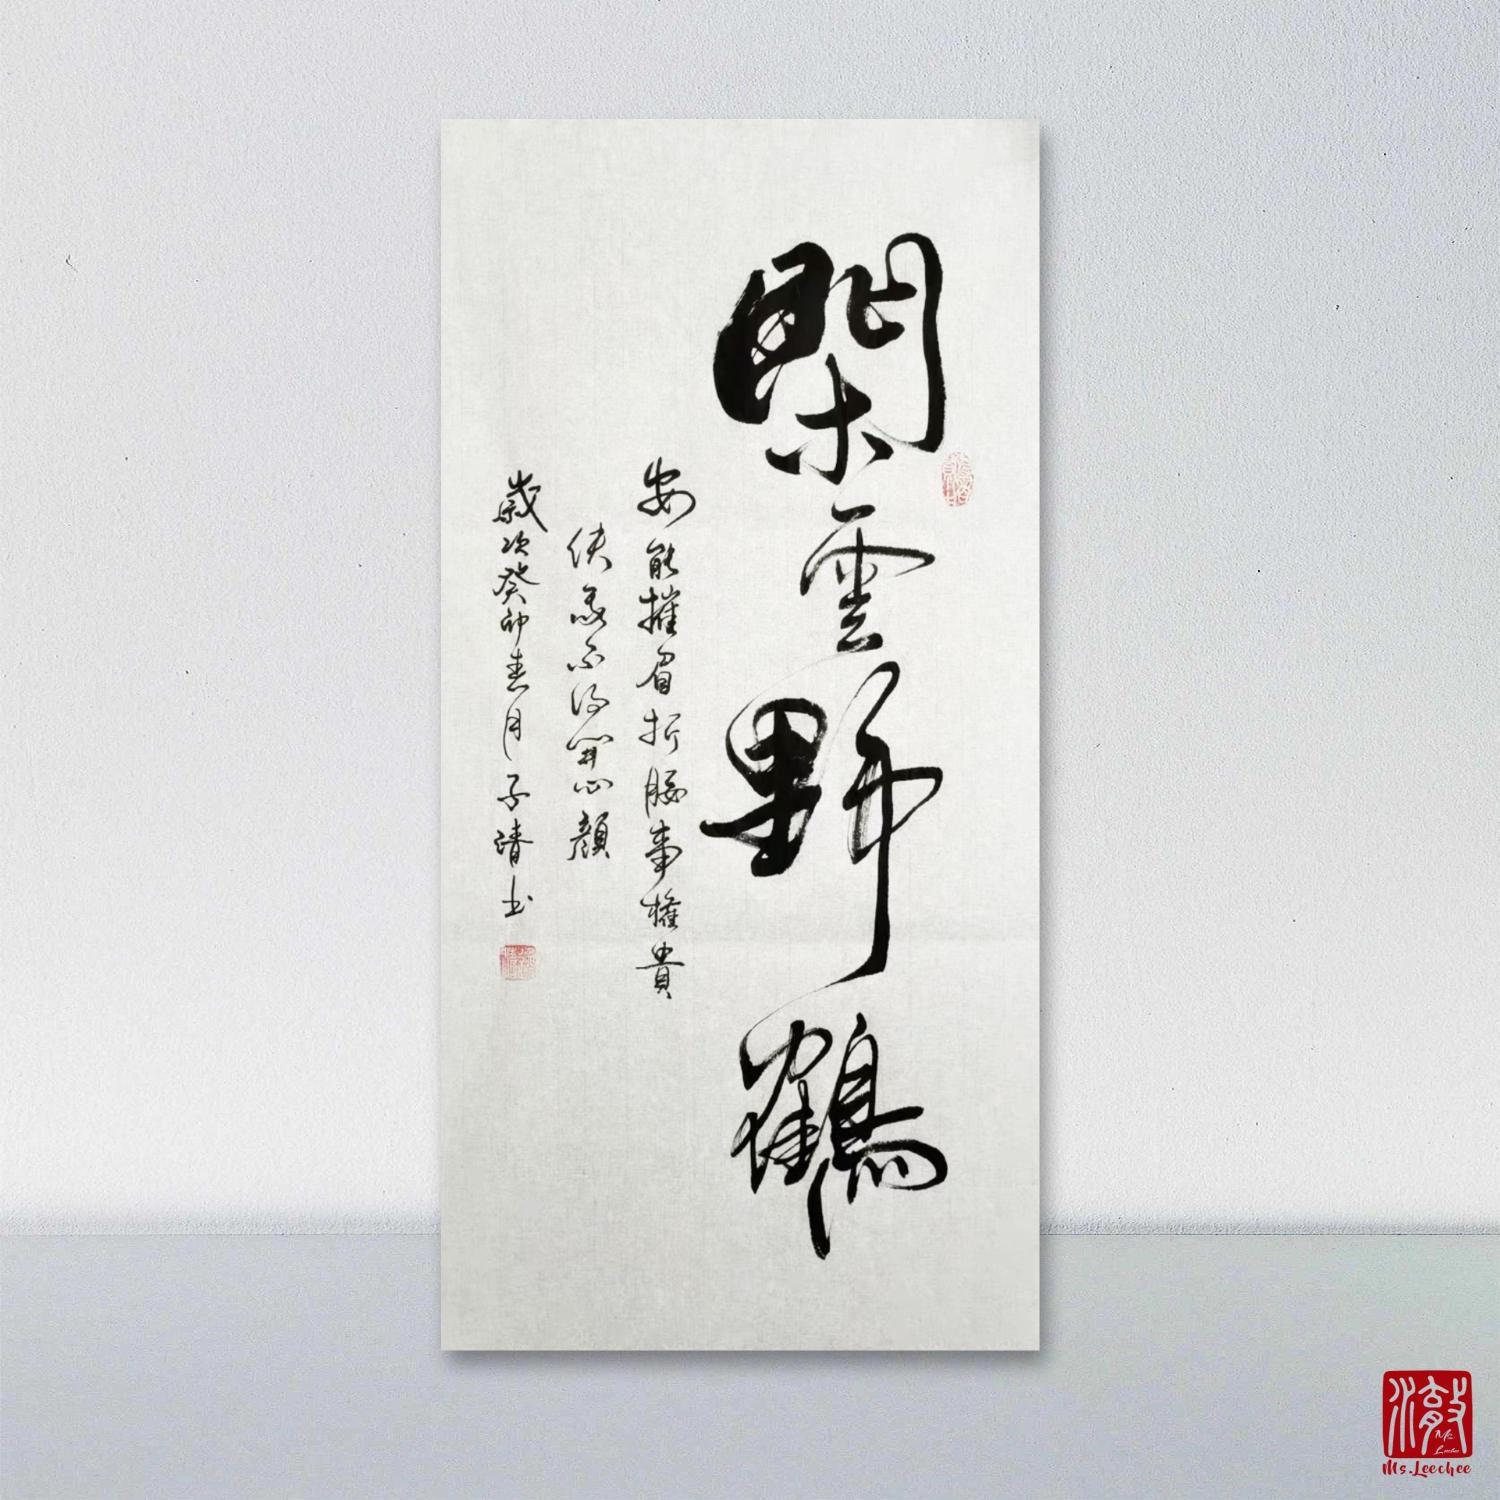 閑雲野鶴
安能摧眉折腰事權貴
使我不得開心顏
歲次癸卯春月子靖書
Ms.Leechee